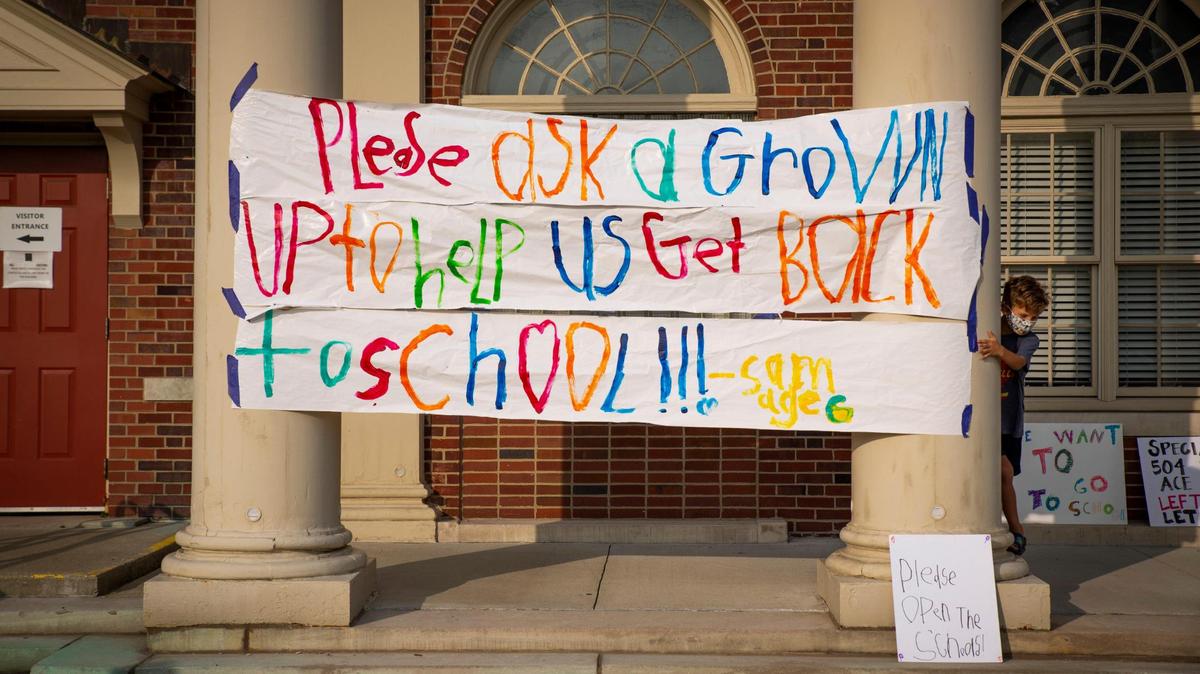 VISITOR
ENTRANCE
PLease ask a GroWN
UP to help US Get BACK
to sCHOOL!!! -sam
age 6
E WANT
TO
GO
TO SCHO
SPECI
504
ACE
LEFT
LET
Please
Open The
Schools!